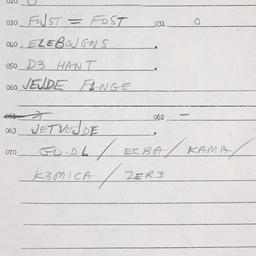 020
030 FOJST = FOST 031 0
040 ELEBOJGNS .
050 D3 HANT .
060 JEJDE FINGE
062 -
063 JETVEJDE .
070 GU.DL / ECRA / KAMA /
K3MICA / ZER3